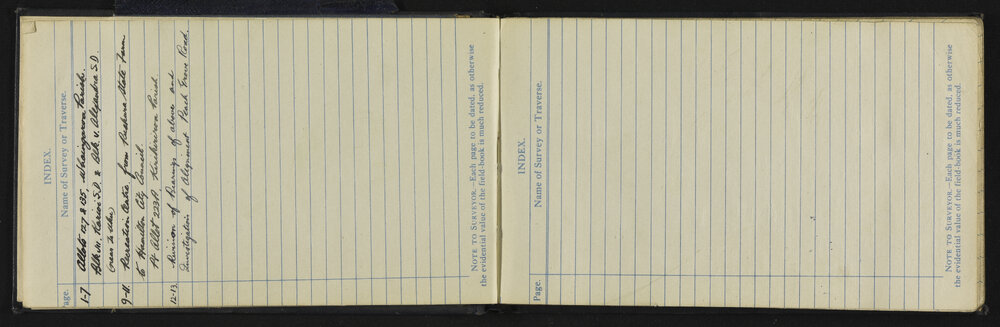 INDEX.
Page. Name of Survey or Traverse.
1-7 Allots 127 & 135, Whaingaroa Parish.
Blk III. Karioi S.D. & Blk. V. Alexandra S.D.
9-11 Recreation Centre, from Ruakura State Farm
to Hamilton City Council.
Pt Allot 223A Kirikiriroa Parish.
12-13. Revision of Bearings of above and
Investigation of Alignment Peach Grove Road.
NOTE TO SURVEYOR.—Each page to be dated, as otherwise
the evidential value of the field-book is much reduced.
INDEX.
Page. Name of Survey or Traverse.
NOTE TO SURVEYOR.—Each page to be dated, as otherwise
the evidential value of the field-book is much reduced.